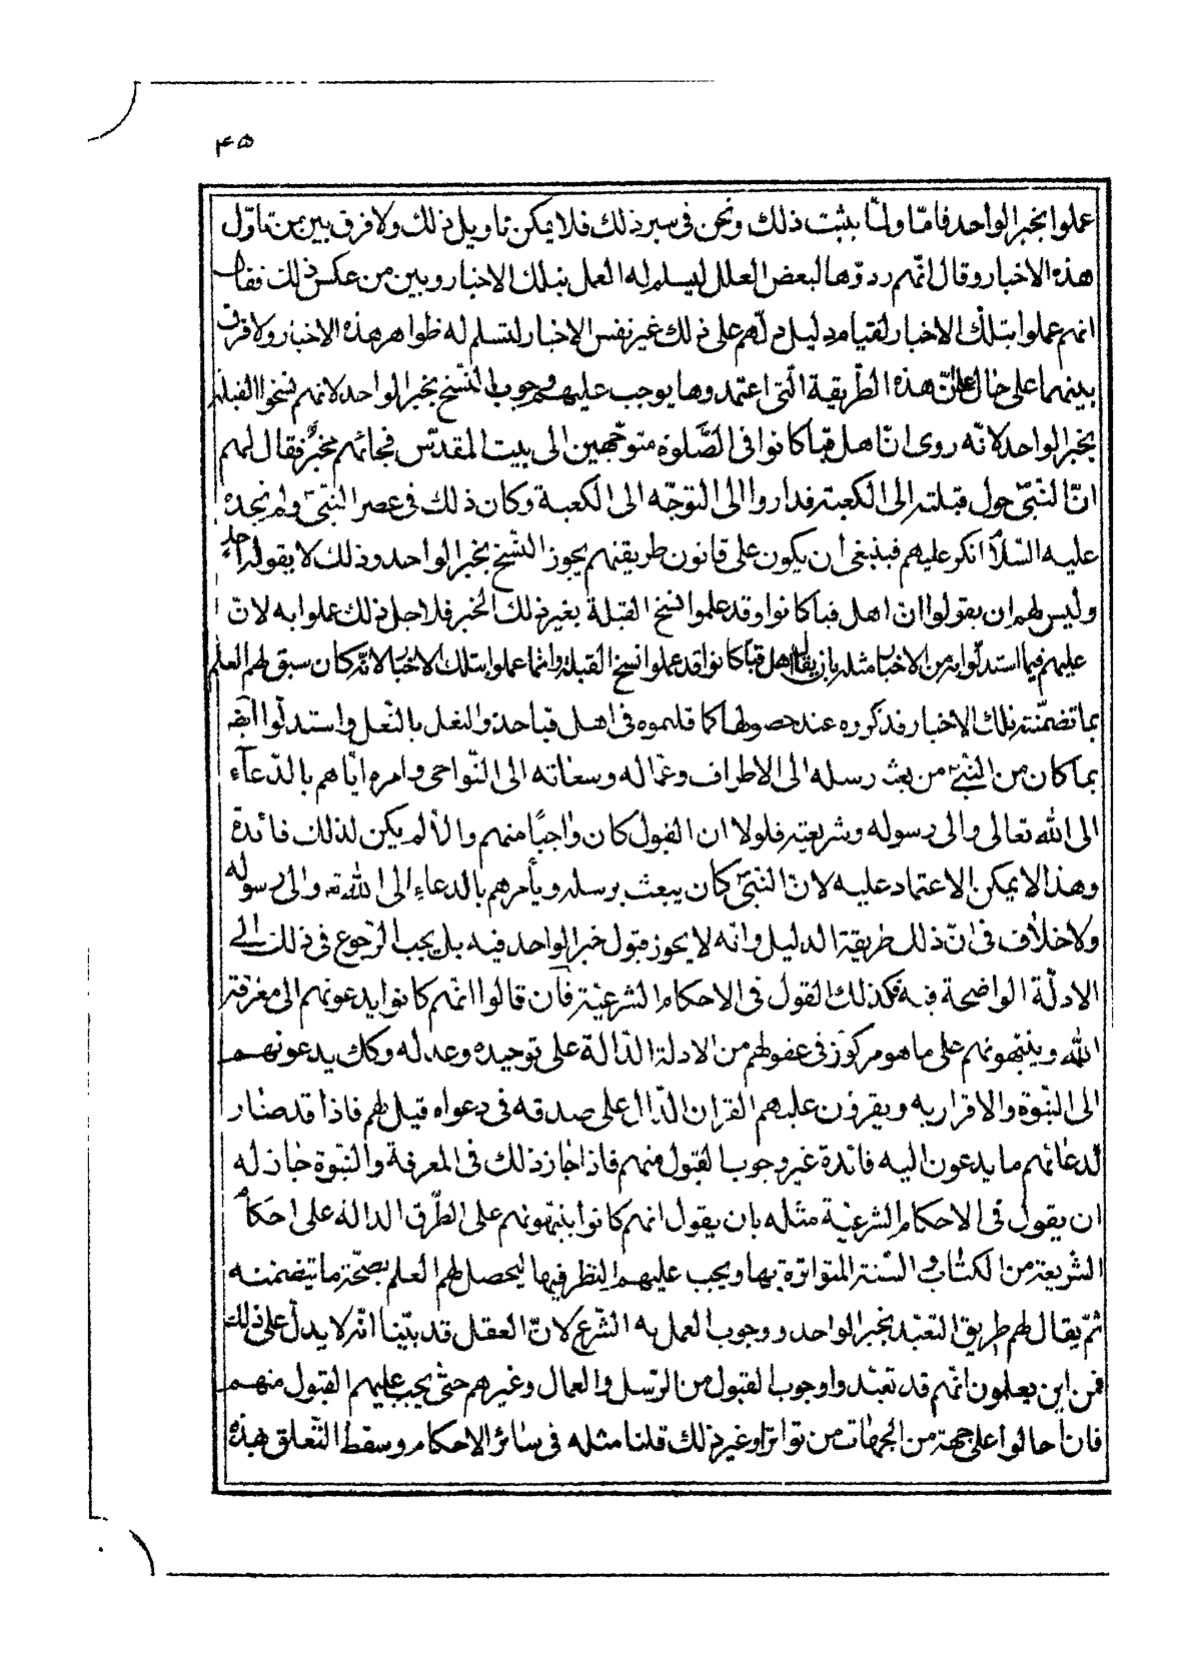 ۴۵
عملوا بخبر الواحد فامّا ولمّا يثبت ذلك ونحن فى سبر ذلك فلا يمكن تأويل ذلك ولا فرق بين من تاوّل
هذه الاخبار وقال انّهم ردوّها لبعض العلل ليسلم له العمل بتلك الاخبار وبين من عكس ذلك فقال
انهم عملوا بتلك الاخبار لقيام دليل دلّهم على ذلك غير نفس الاخبار لتسلم له ظواهر هذه الاخبار ولا فرق
بينهما على حال على انّ هذه الطّريقة الّتى اعتمدوها يوجب عليهم وجوب النّسخ بخبر الواحد لانهم نسخوا القبلة
بخبر الواحد لانّه روى انّ اهل قبا كانوا فى الصّلوة متوجّهين الى بيت المقدّس فجائهم مخبرٌ فقال لهم
انّ النّبىّ حول قبلته الى الكعبة فداروا الى التوجّه الى الكعبة وكان ذلك فى عصر النّبىّ ولم نجده
عليه السّلام انكر عليهم فينبغى ان يكون على قانون طريقتهم يجوز النّسخ بخبر الواحد وذلك لا يقوله احد
وليس لهم ان يقولوا انّ اهل قبا كانوا وقد علموا نسخ القبلة بغير ذلك الخبر فلاجل ذلك عملوا به لانّ
عليهم فيما استدلّوا به من الاخبار مثله بان يقال اهل قبا كانوا قد علموا نسخ القبلة وانما عملوا بتلك الاخبار لانّه كان سبق لهم العلم
بما تضمّنته تلك الاخبار فذكروه عند حصولها كما قلتموه فى اهل قبا حذو النعل بالنّعل واستدلّوا ايضا
بما كان من النبىّ من بعث رسله الى الاطراف وعمّاله وسعاته الى النّواحى وامره ايّاهم بالدّعآء
الى الله تعالى والى رسوله وشريعته فلولا ان القبول كان واجبًا منهم والّا لم يكن لذلك فائدة
وهذا لا يمكن الاعتماد عليه لانّ النّبىّ كان يبعث برسله ويأمرهم بالدعاء الى الله تعـ والى رسوله
ولا خلاف فى انّ ذلك طريقة الدليل وانّه لا يجوز قبول خبر الواحد فيه بل يجب الرّجوع فى ذلك الى
الادلّة الواضحة فيه فكذلك القول فى الاحكام الشرعيّة فان قالوا انّهم كانوا يدعونهم الى معرفة
الله وينبّهونهم على ما هو مركوز فى عقولهم من الادلة الدّالة على توحيده وعدله وكك يدعونهم
الى النبّوة والاقرار به ويقرؤن عليهم القران الدّال على صدقه فى دعواه قيل لهم فاذا قد صار
لدعائهم ما يدعون اليه فائدة غير وجوب القبول منهم فاذا جاز ذلك فى المعرفة والنبّوة جاز له
ان يقول فى الاحكام الشرعيّة مثله بان يقول انهم كانوا ينبّهونهم على الطّرق الدالة على احكام
الشريعة من الكتاب والسّنة المتواترة بها ويجب عليهم النظر فيها ليحصل لهم العلم بصحّة ما يتضمنه
ثمّ يقال لهم طريق التعبّد بخبر الواحد ووجوب العمل به الشّرع لانّ العقل قد بيّنا انّه لا يدلّ على ذلك
فمن اين يعلمون انّهم قد تعبّدوا وجوب القبول من الرّسل والعمال وغيرهم حتّى يجب عليهم القبول منهم
فان احالوا على جهة من الجهات من تواتر او غير ذلك قلنا مثله فى سائر الاحكام وسقط التّعلق بهذه